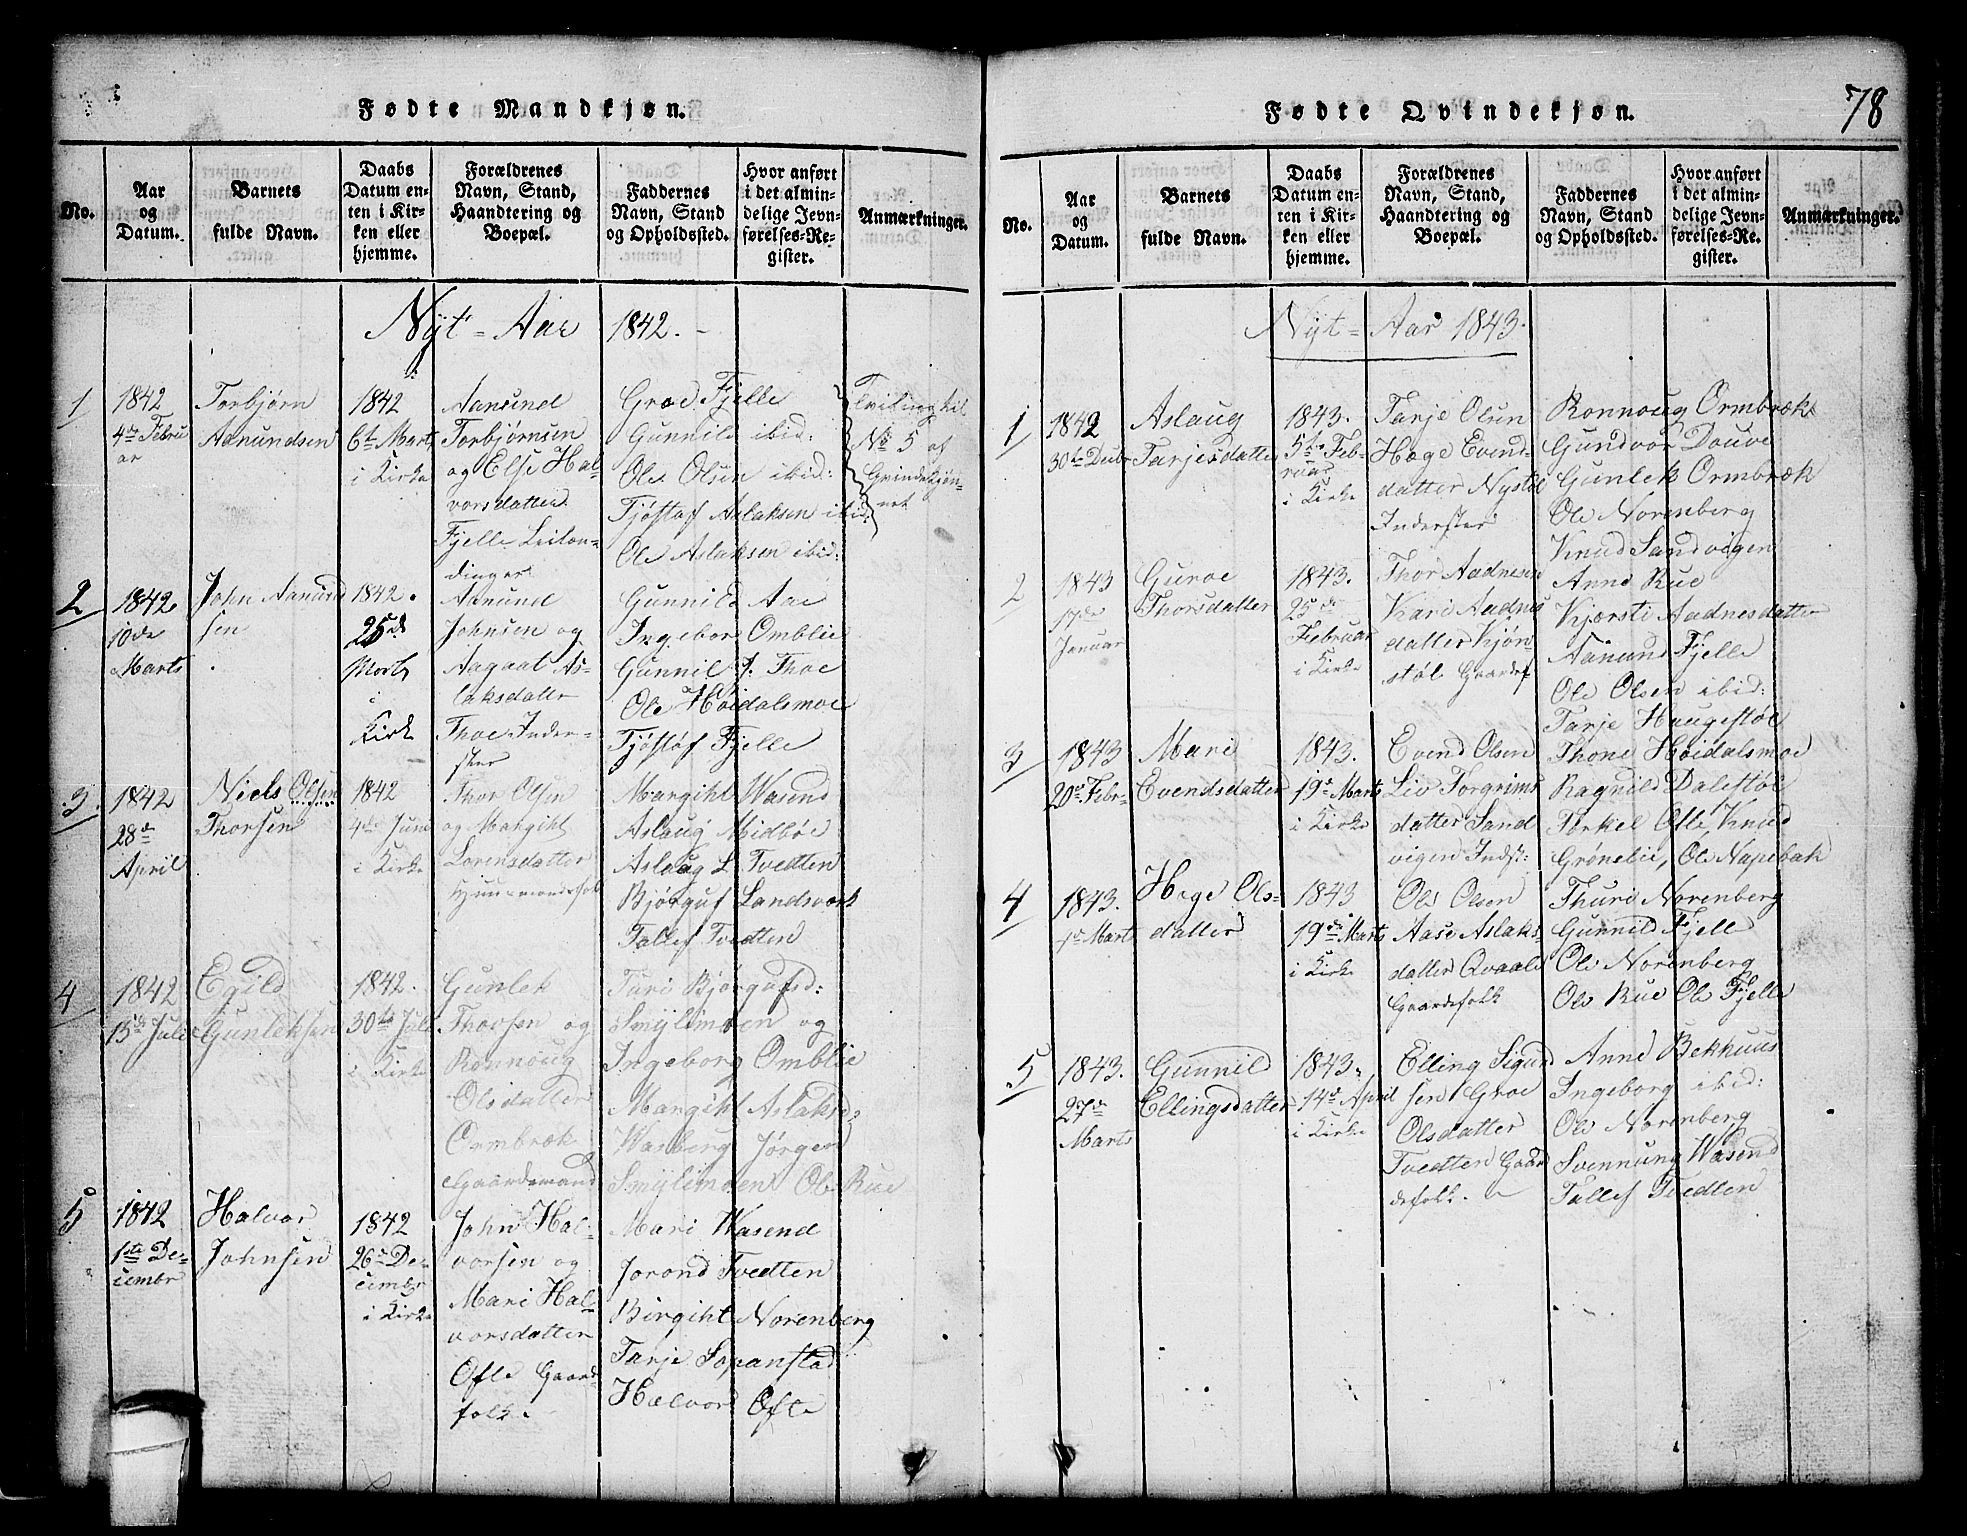 78
Fødte Mandkjøn.
No.
Aar
og
Datum.
Barnets
fulde Navn.
Daabs
Datum en-
ten i Kir-
ken eller
hjemme.
Forældrenes
Navn, Stand,
Haandtering og
Boepæl.
Faddernes
Navn, Stand
og Opholdssted.
Hvor anført
i det almin-
delige Jevn-
førelses-Re-
gister.
Anmærkninger.
Nyt-Aar 1842.-
1
1842
4de Febru
ar
Torbjørn
Aanundsen
1842
6te Marts
i Kirke
Aanund
Torbjørnsen
og Else Hal-
vorsdatter
Fjelle Leilæn-
dinger
Groe Fjelle
Gunnild ibid:
Ole Olsen ibid:
Tjøstof Aslaksen ibid:
Ole Aslaksen ibid:
Tvilling til
No 5 af
Qvindekjøn-
net
2
1842.
10de
Marts
John Aanund
sen
1842.
25de
Marts
i
Kirke
Aanund
Johnsen og
Aagaat As-
laksdatter
Thoe Inder-
ster
Gunnild Aae
Ingebor Omblie
Gunnil A. Thoe
Ole Høidalsmoe
Tjøstof Fjelle
3
1842
28de
April
Niels Olsen
Thorsen
1842
4de Juni
i Kirke
Thor Olsen
og Margiht
Lorensdatter
Huusmandsfolk
Margiht Wasend
Aslaug Midbøe
Aslaug L. Tvedten
Bjørguf Landsverk
Tallef Tvedten
4
1842
15de Juli
Egild
Gunleksen
1842.
30te Juli
i Kirke
Gunlek
Thorsen og
Ronnoug
Olsdatter
Ormbræk
Gaardmand
Turi Bjørgufsd:
Smylimoen og
Ingeborg Omblie
Margiht Aslaksd:
Wasberg Jørgen
Smylimoen Ole Rue
5
1842
1ste De-
cember
Halvor
Johnsen
1842
26de De-
cember
i Kirke
John Hal-
vorsen og
Mari Hal-
vorsdatter
Ofte Gaard
folk.
Mari Wasend
Jorond Tvedten
Birgiht Norenberg
Tarje Sopanstad
Halvor Ofte
Fødte Qvindekjøn.
No.
Aar
og
Datum.
Barnets
fulde Navn.
Daabs
Datum en-
ten i Kir-
ken eller
hjemme.
Forældrenes
Navn, Stand,
Haandtering og
Boepæl.
Faddernes
Navn, Stand
og Opholdssted.
Hvor anført
i det almin-
delige Jevn-
førelses-Re-
gister.
Anmærkninger.
Nyt-Aar 1843.
1
1842
30te Decbr
Aslaug
Tarjesdatter
1843.
5te Feb-
ruar
i Kirke
Tarje Olsen
Hæge Evend-
datter Nystøl
Inderster
Ronnoug Ormbræk
Gundvor Douve
Gunlek Ormbræk
Ole Norenberg
Knud Sandvigen
2
1843
17de
Januar
Guroe
Thorsdatter
1843.
25de
Februar
i Kirke
Thor Aadnesen
Kari Aadnes
datter Kjøn-
støl Gaardsf
Anne Rue
Kjærsti Aadnesdatter
Aanund Fjelle
Ole Olsen ibid:
Tarje Haugestøl
3
1843
20de Febr-
Mari
Evendsdatter
1843.
19de Marts
i Kirke
Evend Olsen
Liv Torgrims
datter Sand
vigen Indst:
Thone Høidalsmoe
Ragnild Dalestøl
Torkel Ofte, Knud
Grønelie, Ole Napebak
4
1843.
1de Marts
Hæge Ols-
datter
1843
19de Marts
i Kirke
Ole Olsen
Aase Aslaks-
datter Qvaale
Gaardsfolk
Thuri Norenberg
Gunnild Fjelle
Ole Norenberg
Ole Rue Ole Fjelle
5
1843.
27de
Marts
Gunnil
Ellingsdatter
1843.
14de April
i Kirke
Elling Sigurd
sen Groe
Olsdatter
Tvedten Gaar
dsfolk.
Anne Bekhuus
Ingeborg ibid:
Ole Norenberg
Svennung Wasend
Tallef Tvedten